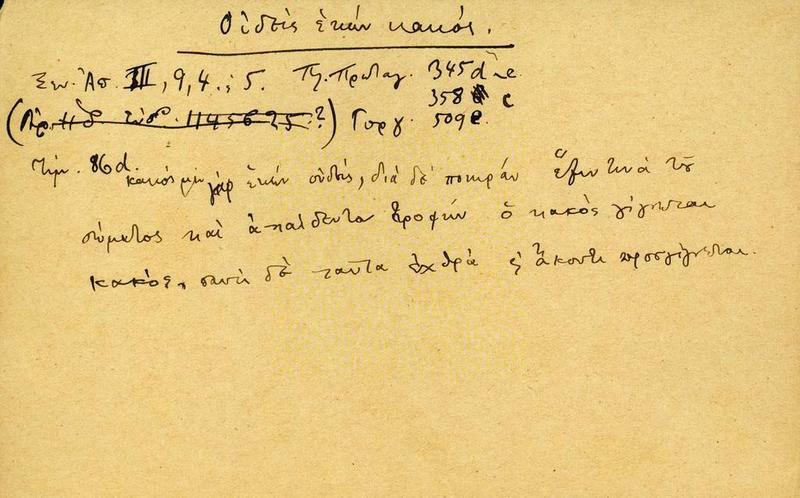 Οὐδεὶς ἑκὼν κακός.
Ξεν. Ἀπ. III, 9, 4. ; 5. Πλ. Πρωταγ. 345 d-e
358 c
( 1145 b 25 ? ) Γοργ. 509 e.
Τίμ. 86 d. κακὸς μὲν γὰρ ἑκὼν οὐδείς, διὰ δὲ πονηρὰν ἕξιν τινὰ τοῦ
σώματος καὶ ἀπαίδευτον τροφὴν ὁ κακὸς γίγνεται
κακός, παντὶ δὲ ταῦτα ἐχθρὰ καὶ ἄκοντι προσγίγνεται.